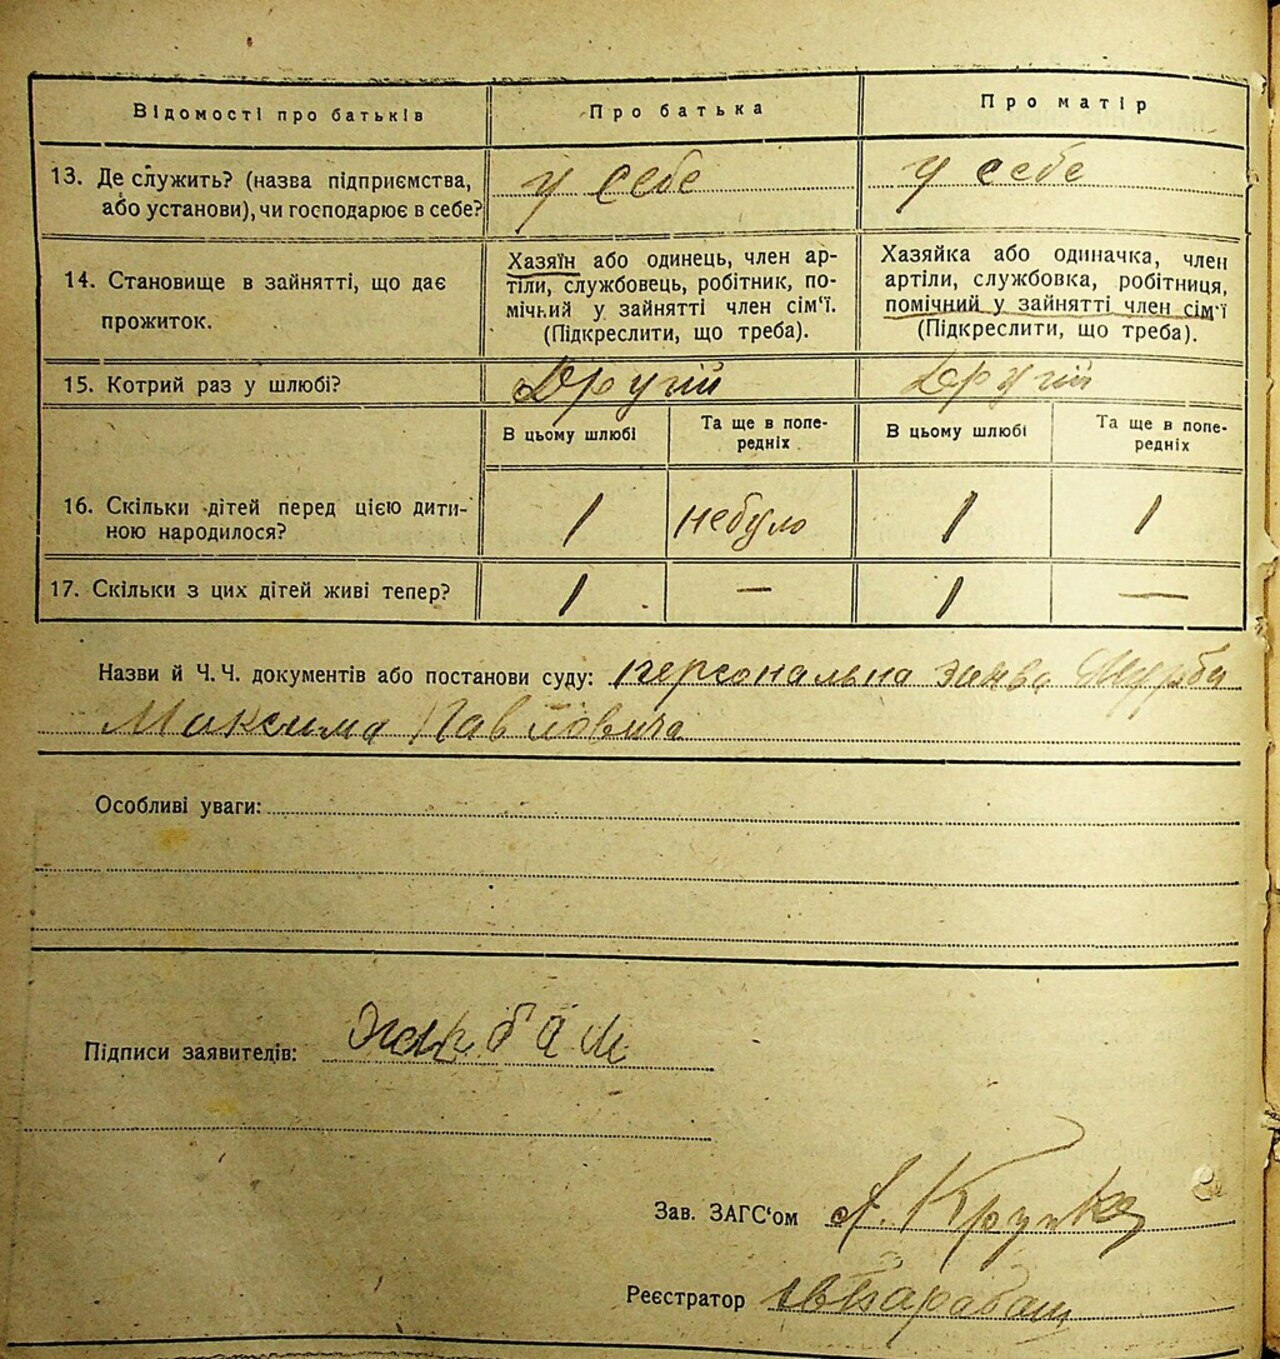 Відомості про батьків
Про батька
Про матір
13. Де служить? (назва підприємства, або установи), чи господарює в себе?
у себе
у себе
14. Становище в зайнятті, що дає прожиток.
Хазяїн або одинець, член ар-
тіли, службовець, робітник, по-
мічний у зайнятті член сім'ї.
(Підкреслити, що треба).
Хазяйка або одиначка, член
артіли, службовка, робітниця,
помічний у зайнятті член сім'ї
(Підкреслити, що треба).
15. Котрий раз у шлюбі?
Другій
Другій
В цьому шлюбі
Та ще в попе-
редніх
В цьому шлюбі
Та ще в попе-
редніх
16. Скільки дітей перед цією дити-
ною народилося?
1
небуло
1
1
17. Скільки з цих дітей живі тепер?
1
—
1
—
Назви й Ч. Ч. документів або постанови суду: персональна
Максима Павловича
Особливі уваги:
Підписи заявителів:
Зав. ЗАГС'ом
Реєстратор